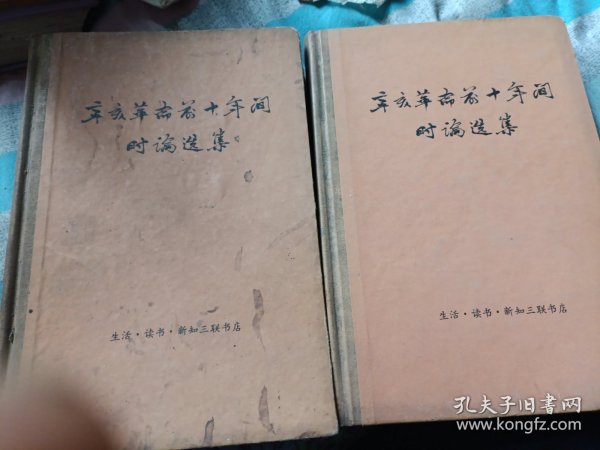 辛亥革命前十年间
时论选集
生活·读书·新知三联书店
辛亥革命前十年间
时论选集
生活·读书·新知三联书店
孔夫子旧书网
www.kongfz.com